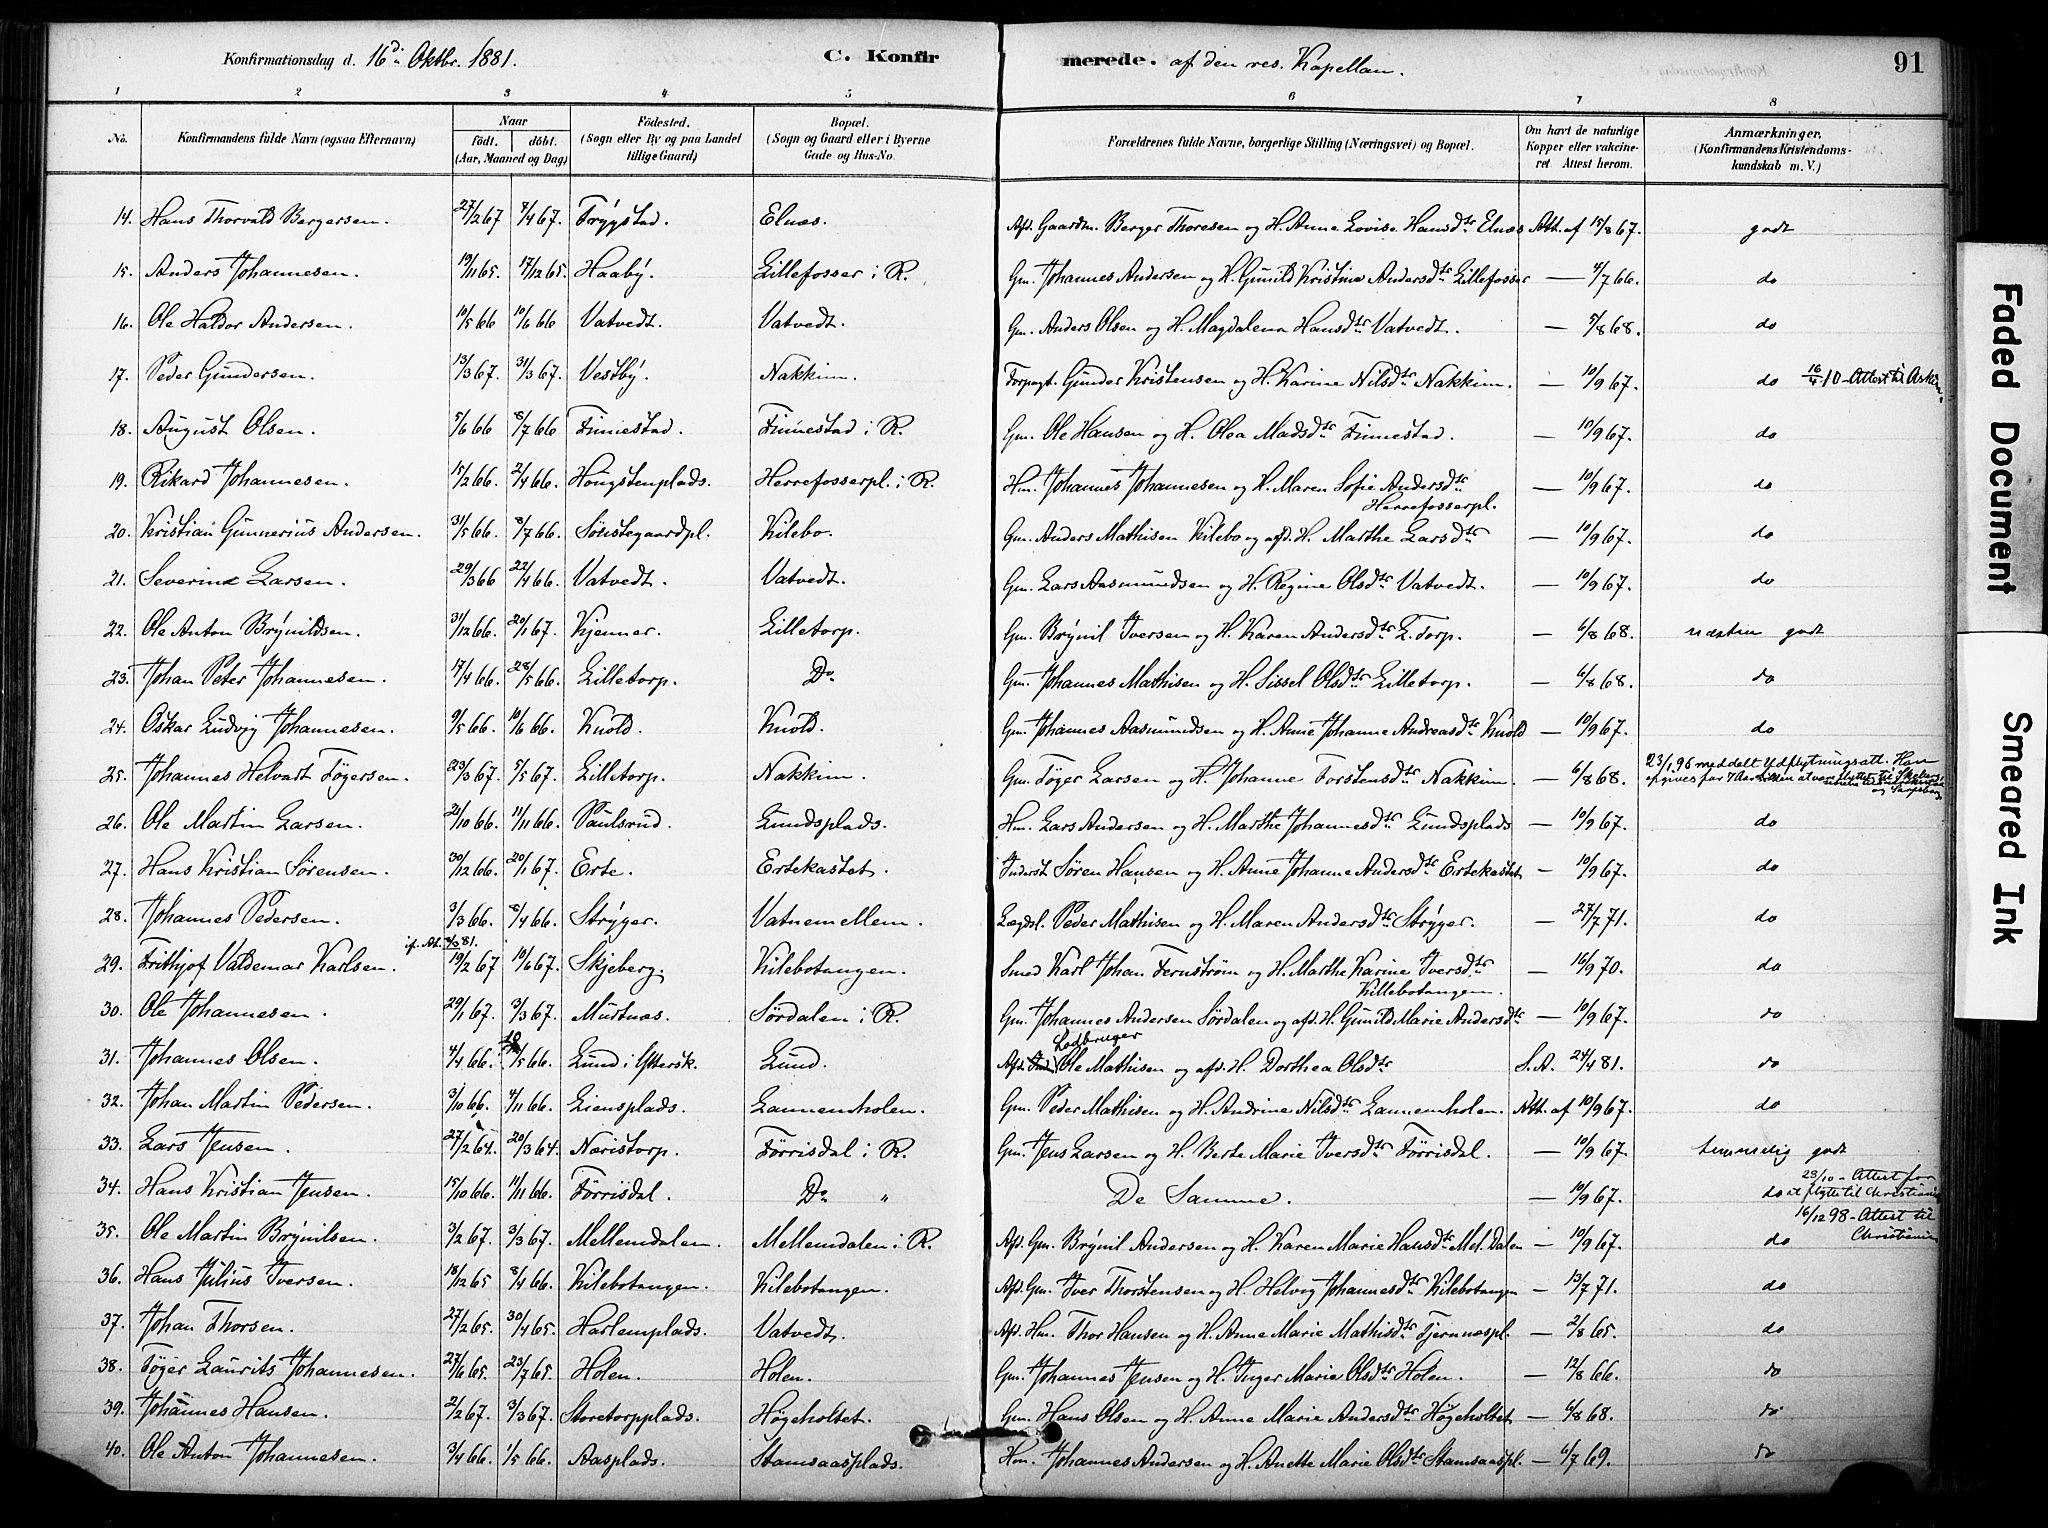 Konfirmationsdag d. 16d. Oktbr. 1881. C. Konfirmerede. af den res. Kapellan. 91
1 2 3 4 5 6 7 8
No. Konfirmandens fulde Navn (ogsaa Efternavn) Naar födt. döbt. (Aar, Maaned og Dag) Födested. (Sogn eller By og paa Landet tillige Gaard) Bopæl. (Sogn og Gaard eller i Byerne Gade og Hus-No. Forældrenes fulde Navne, borgerlige Stilling (Næringsvei) og Bopæl. Om havt de naturlige Kopper eller vakcineret. Attest herom. Anmærkninger. (Konfirmandens Kristendomskundskab m. V.)
14. Hans Thorvald Bergersen. 27/2 67 7/4 67. Frøgstad. Elnæs. Afd. Gaardm. Berger Thoresen og H. Anne Lovise Hansdtr Elnæs Att. af 15/8 67. godt
15. Anders Johannesen. 19/11 65. 17/12 65. Haaby. Lillefosser i R. Gm. Johannes Andersen og H. Gunild Kristine Andersdtr Lillefosser — 4/7 66. do
16. Ole Haldor Andersen. 10/5 66 10/6 66 Vatvedt. Vatvedt. Gm. Anders Olsen og H. Magdalena Hansdtr Vatvedt. — 5/8 68. do
17. Peder Gundersen. 13/3 67. 31/3 67. Vestby. Nakkim. Forpagt. Gunder Kristensen og H. Karine Nilsdtr Nakkim. — 10/9 67. do 16/4 10 - Attest til Askim.
18. August Olsen. 5/6 66 8/7 66 Finnestad. Finnestad i R. Gm. Ole Hansen og H. Olea Madsdtr Finnestad. — 10/9 67. do
19. Rikard Johannesen. 15/2 66. 2/4 66. Hougstenplads. Herrefosserpl. i R. Hm. Johannes Johannesen og H. Maren Sofie Andersdtr Herrefosserpl. — 10/9 67. do
20. Kristian Gunnerius Andersen. 31/5 66. 8/7 66. Sønstegaardpl. Kilebo. Gm. Anders Mathisen Kilebo og afd. H. Marthe Larsdtr — 10/9 67. do
21. Severin Larsen. 29/3 66 22/4 66. Vatvedt. Vatvedt. Gm. Lars Aasmundsen og H. Regine Olsdtr Vatvedt. — 10/9 67. do
22. Ole Anton Brynildsen. 31/12 66. 20/1 67. Kjenner. Lilletorp. Gm. Brynil Iversen og H. Karen Andersdtr L. Torp. — 6/8 68. næsten godt
23. Johan Peter Johannesen. 17/4 66. 28/5 66. Lilletorp. Do. Gm. Johannes Mathisen og H. Sissel Olsdtr Lilletorp. — 6/8 68. do
24. Oskar Ludvig Johannesen. 9/5 66. 10/6 66. Knold. Knold. Gm. Johannes Aasmundsen og H. Anne Johanne Andreasdtr Knold — 10/9 67. do
25. Johannes Helvart Töger­sen. 23/3 67. 5/5 67. Lilletorp. Nakkim. Gm. Töger Larsen og H. Johanne Torstensdtr Nakkim. — 6/8 68. 23/1 96 meddelt Udflytningsatt. Han opgives for 7 Aar siden at være flyttet til og Sarpsborg
26. Ole Martin Larsen. 21/10 66. 11/11 66. Paulsrud. Lundsplads. Hm. Lars Andersen og H. Marthe Johannesdtr Lundsplads — 10/9 67. do
27. Hans Kristian Sørensen. 30/12 66. 20/1 67. Erte. Ertekastet. Inderst Søren Hansen og H. Anne Johanne Andersdtr Ertekastet — 10/9 67. do
28. Johannes Pedersen. 3/3 66. 8/4 66. Stryger. Vatnemellem. Lægdsl. Peder Mathisen og H. Maren Andersdtr Stryger. — 27/7 71. do
29. Frithjof Valdemar Karlsen. if. At. 4/8 81. 19/2 67 10/6 67. Skjeberg. Kilebotangen. Smed Karl Johan Fernstrøm og H. Marthe Karine Iversdtr Killebotangen. — 16/9 70. do
30. Ole Johannesen. 29/1 67. 3/3 67. Murtnes. Sørdalen i R. Gm. Johannes Andersen Sørdalen og afd. H. Gunild Marie Andersdtr — 10/9 67. do
31. Johannes Olsen. 4/4 66. /5 66. Lund i Ytersk. Lund. Afd. Lodbruger Ole Mathisen og afd. H. Dorthea Olsdtr S. A. 24/4 81. do
32. Johan Martin Pedersen. 3/10 66. 4/11 66. Liensplads. Lannemholen. Gm. Peder Mathisen og H. Andrine Nilsdtr Lannemholen. Att. af 10/9 67. do
33. Lars Jensen. 27/2 64. 20/3 64. Næristorp. Tørrisdal i R. Gm. Jens Larsen og H. Berte Marie Iversdtr Tørrisdal. — 10/9 67. temmelig godt
34. Hans Kristian Jensen. 15/10 66. 11/11 66. Tørrisdal Do " De Samme. — 10/9 67. do 23/10 - Attest for at flytte til Christiania
35. Ole Martin Brynilsen. 3/2 67. 3/3 67. Mellemdalen. Mellemdalen i R. Afd. Gm. Brynil Andersen og H. Karen Marie Hansdtr Mel. Dalen — 10/9 67. do 16/12 98 - Attest til Christiania
36. Hans Julius Iversen. 18/12 65 8/4 66. Kilebotangen. Kilebotangen. Afd. Gm. Iver Thorstensen og H. Helvig Johannesdtr Kilebotangen — 13/7 71. do
37. Johan Thorsen. 27/2 65. 30/4 65. Harlemplads. Vatvedt. Afd. Hm. Thor Hansen og H. Anne Marie Mathisdtr Tjernnespl. — 2/8 65. do
38. Töger Laurits Johannesen. 27/6 65. 23/7 65. Holen. Holen. Gm. Johannes Jensen og H. Inger Marie Olsdtr Holen. — 12/8 66. do
39. Johannes Hansen. 2/2 67. 3/3 67. Storetorpplads. Høgeholtet. Gm. Hans Olsen og H. Anne Marie Andersdtr Høgeholtet — 6/8 68. do
40. Ole Anton Johannesen. 3/4 66. 1/5 66. Aasplads. Stamsaasplads. Hm. Johannes Andersen og H. Anette Marie Olsdtr Stamsaaspl. — 6/7 69. do
Faded Document
Smeared Ink